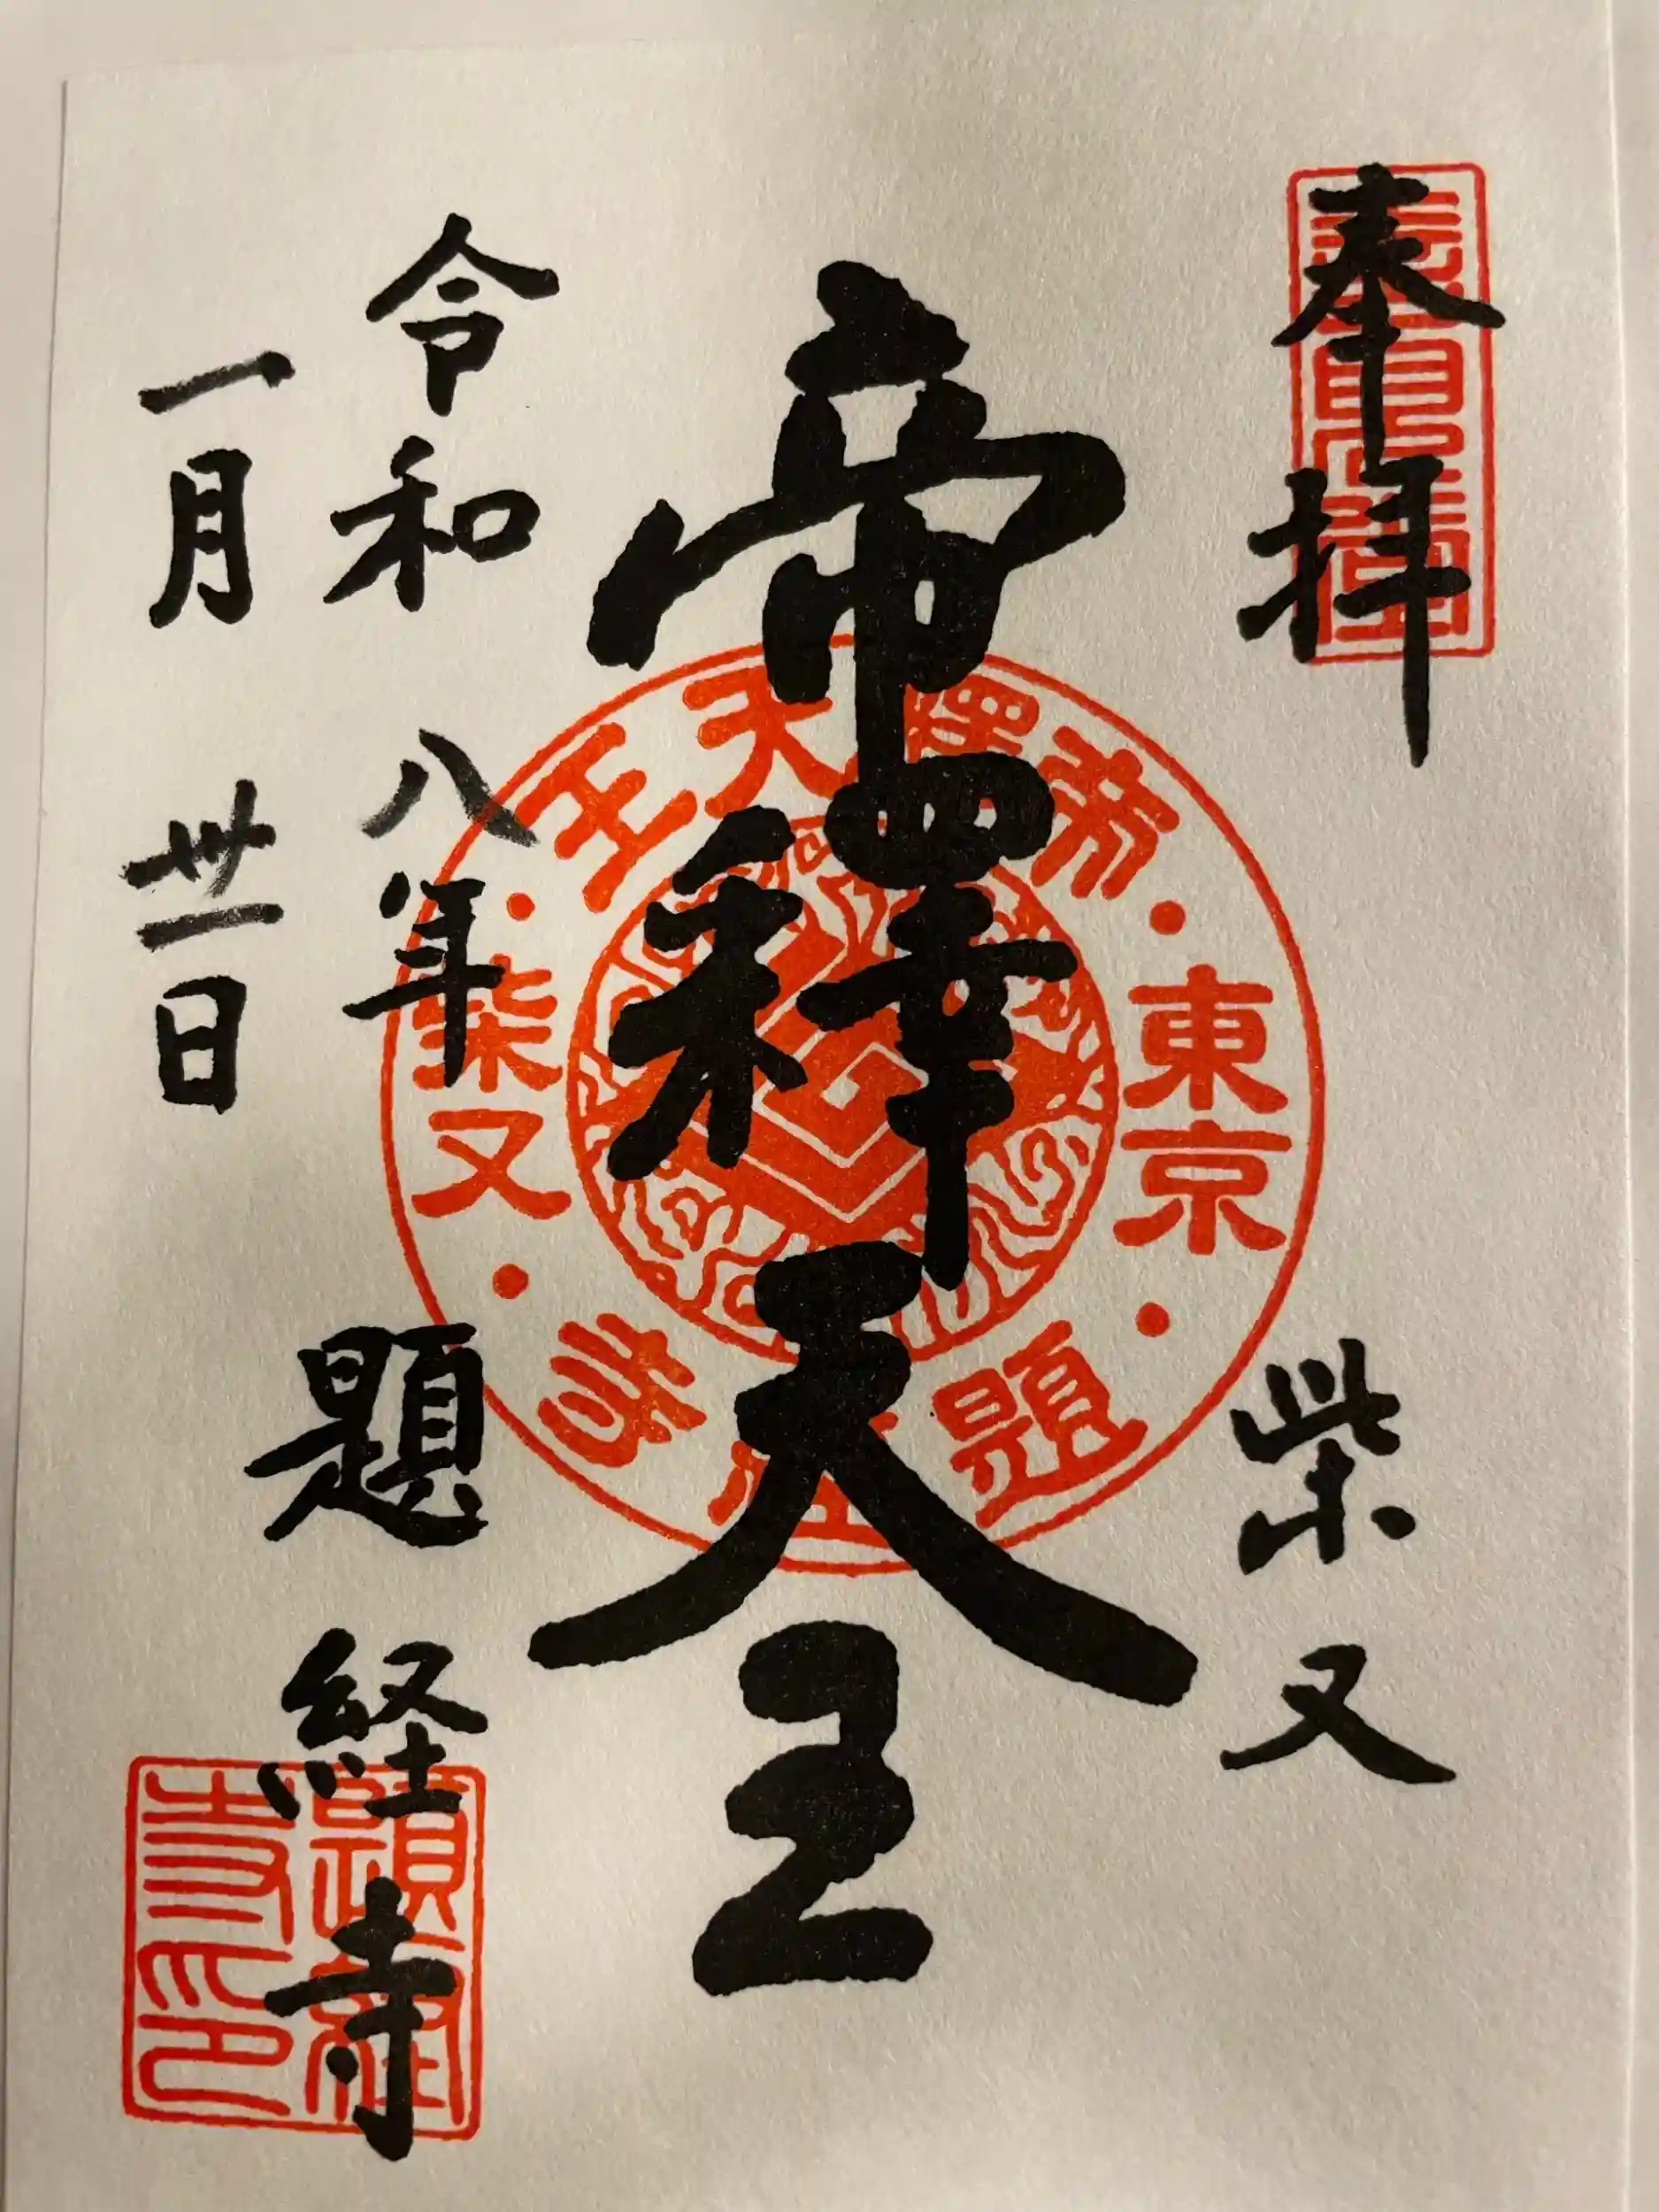 奉拝
柴又
帝釋天王
令和八年
一月卅一日
題経寺
東京
帝釋天王
柴又
題經寺
題經寺印